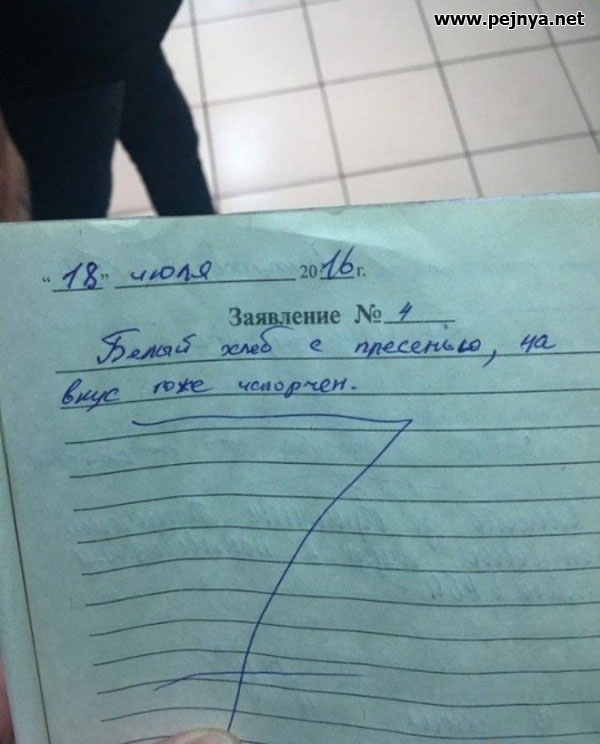 www.pejnya.net
"18" июля 2016 г.
Заявление № 4
Белый хлеб с пресенью, на
вкус тоже испорчен.